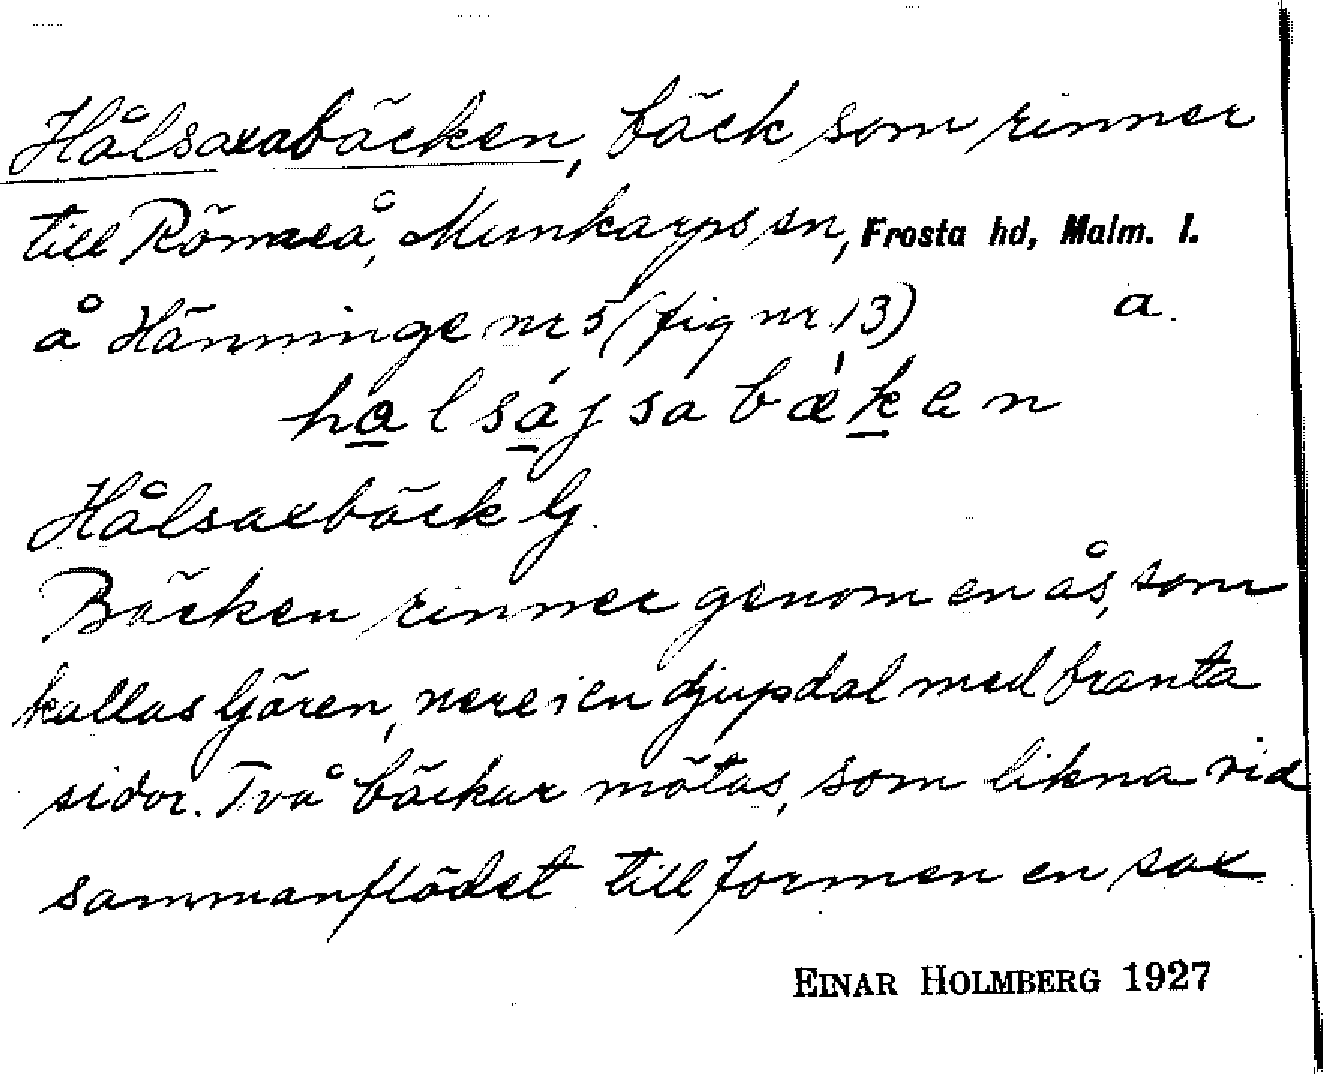 Hålsaxabäcken, bäck som rinner
till Rõmeå, Munkarps sn, Frosta hd, Malm. l.
å Hänninge nr 5 (fig nr 13) a.
halsájsabæken
Hålsaxbäck G.
Bäcken rinner genom en ås, som
kallas Gjären, nere i en djup dal med branta
sidor. Två bäckar mötas, som likna vid
sammanflödet till formen en sax
EINAR HOLMBERG 1927